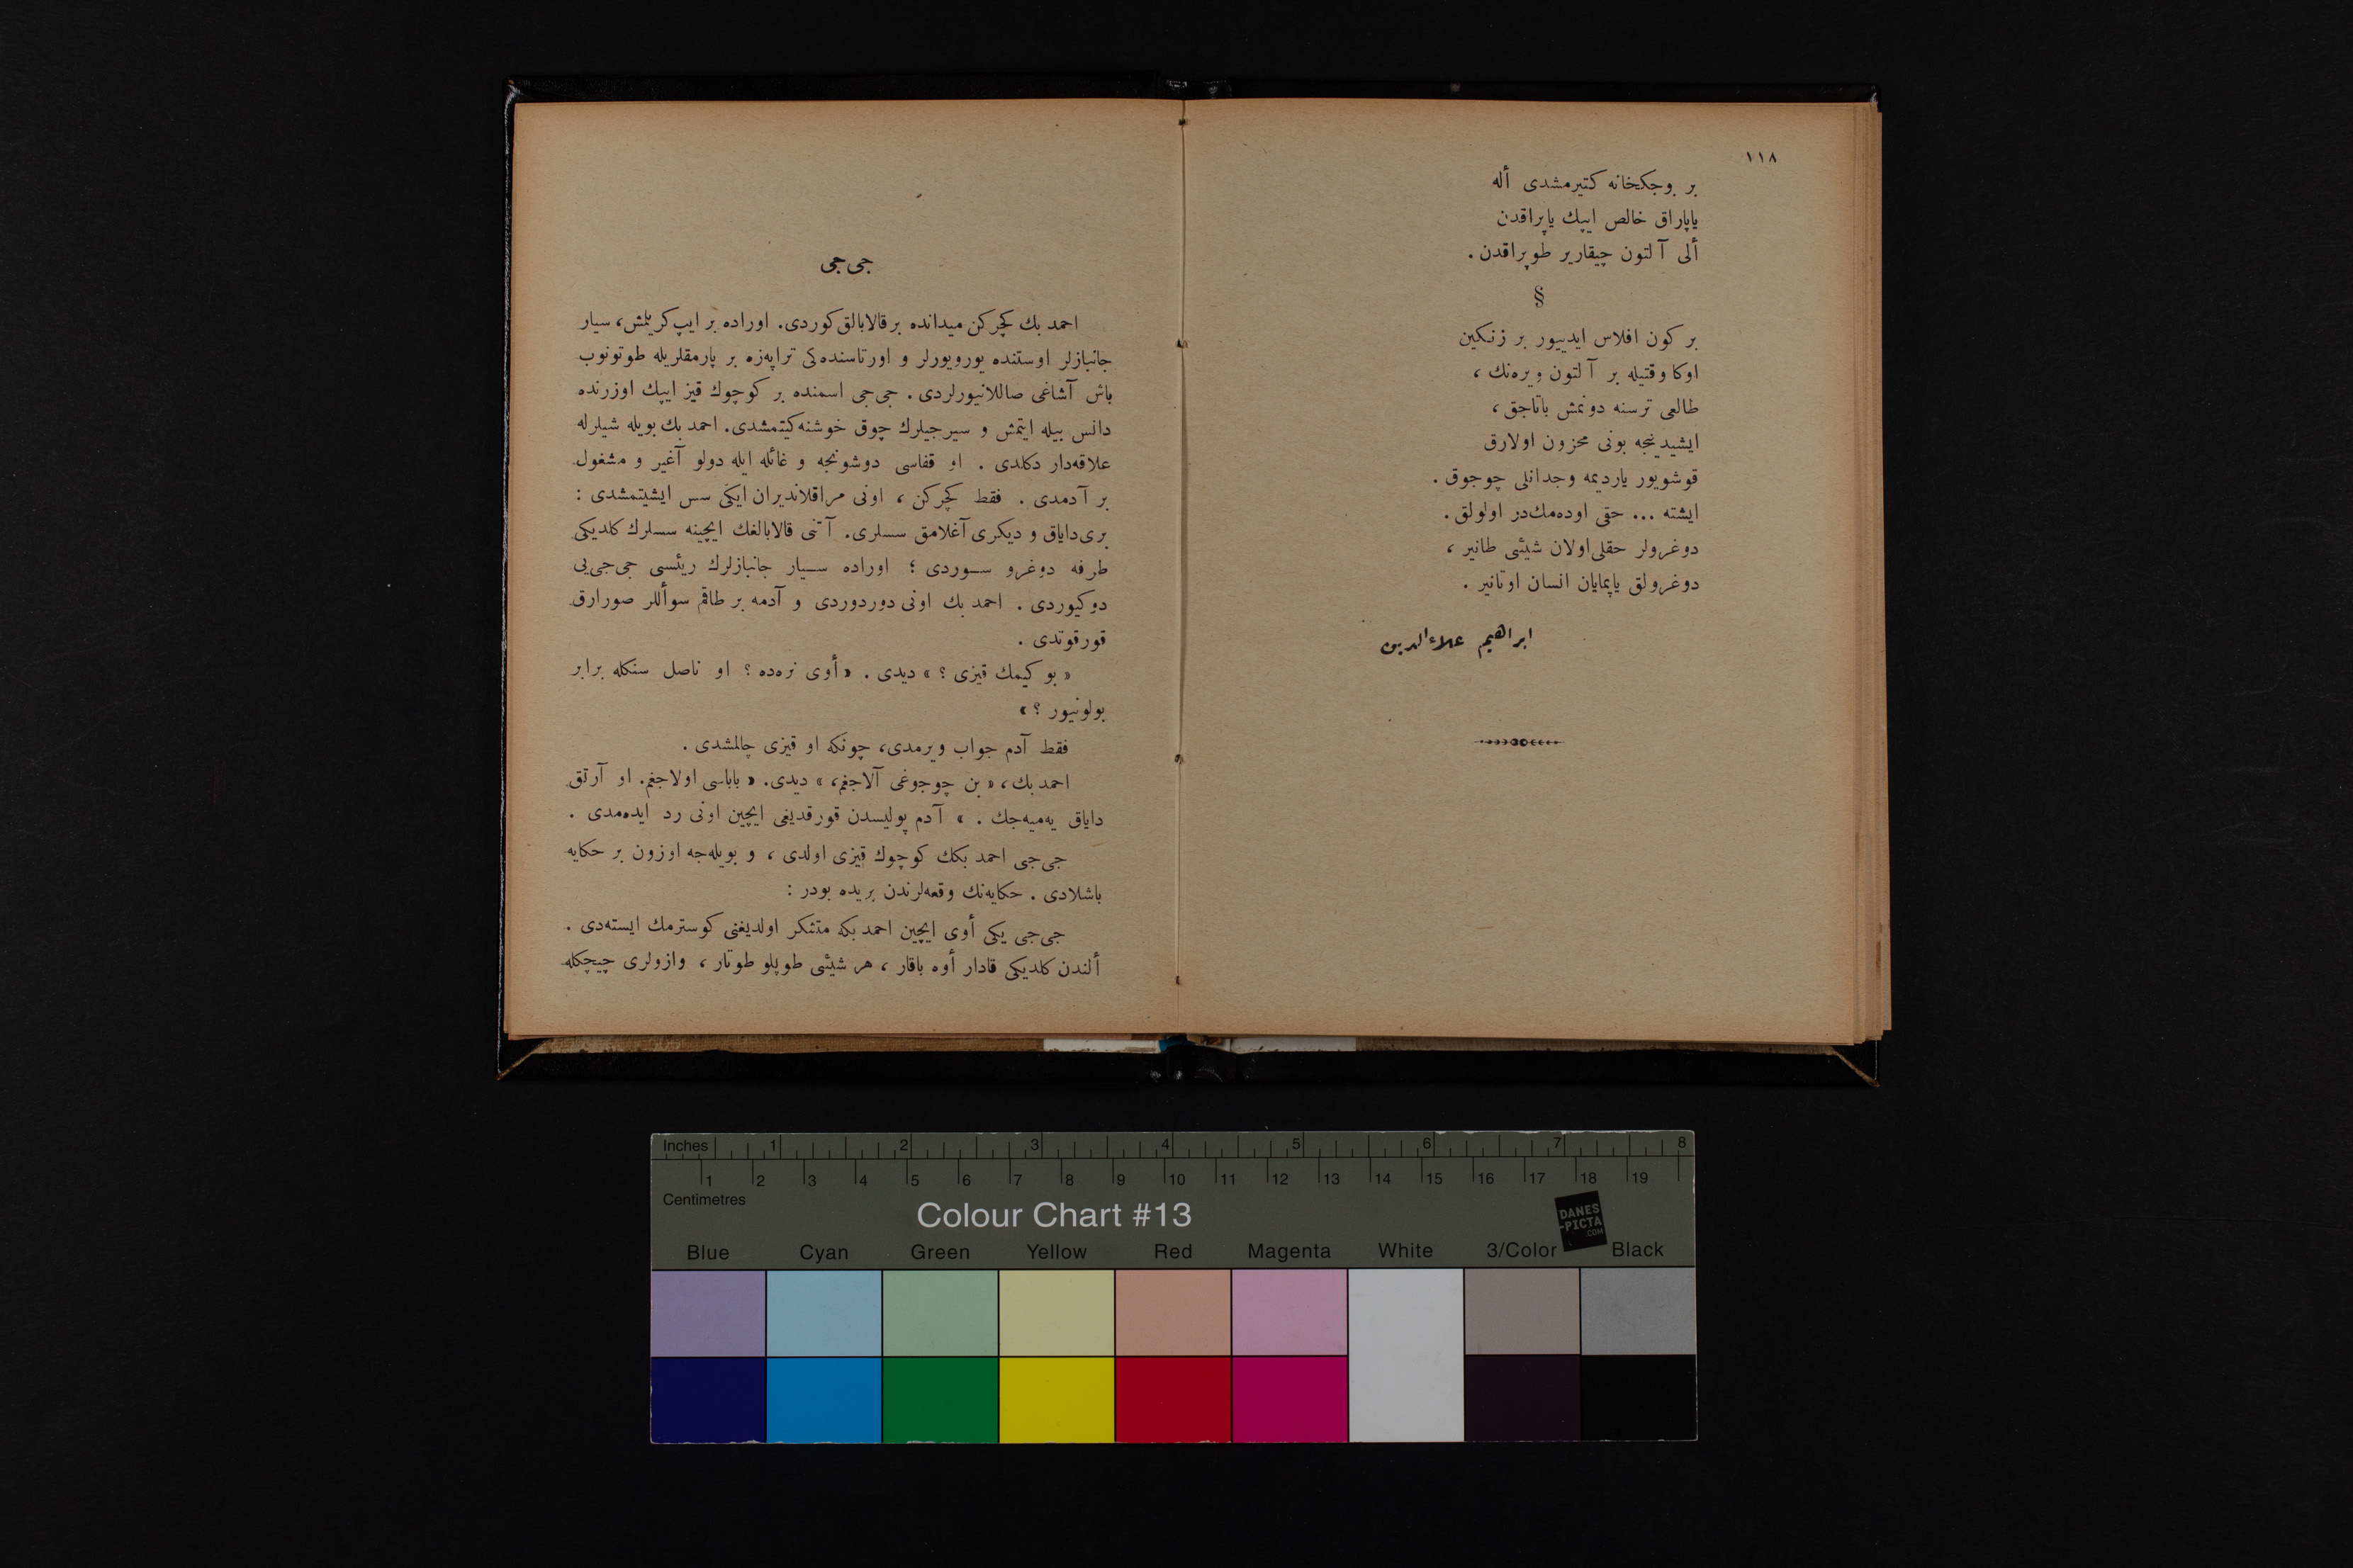 ١١٨
بر بوجكخانه كتيرمشدی أله
یاپاراق خالص ایپك یاپراقدن
ألی آلتون چیقاریر طوپراقدن .
§
بر كون افلاس ایدییور بر زنكین
اوكا وقتیله بر آلتون ویره‌نك ،
طالعی ترسنه دونمش باتاجق ،
ایشیدینجه بونی محزون اولارق
قوشویور یاردیمه وجدانلی چوجوق .
ایشته ... حقی اوده‌مك‌در اولولق .
دوغرولر حقلی اولان شیئی طانیر ،
دوغرولق یاپمایان انسان اوتانیر .
ابراهیم علاءالدین
جی جی
احمد بك كچركن میدانده بر قالابالق كوردی. اوراده بر ایپ كریلمش، سیار
جانبازلر اوستنده یورویورلر و اورتاسنده‌كی تراپه‌زه بر پارمقلریله طوتونوب
باش آشاغی صاللانیورلردی . جی‌جی اسمنده بر كوچوك قیز ایپك اوزرنده
دانس بیله ایتمش و سیرجیلرك چوق خوشنه كیتمشدی. احمد بك بویله شیلرله
علاقه‌دار دكلدی . او قفاسی دوشونجه و غائله ایله دولو آغیر و مشغول
بر آدمدی . فقط كچركن ، اونی مراقلاندیران ایكی سس ایشیتمشدی :
بری دایاق و دیكری آغلامق سسلری. آتنی قالابالغك ایچینه سسلرك كلدیكی
طرفه دوغرو سوردی ؛ اوراده سیار جانبازلرك رئیسی جی‌جی‌یی
دوكیوردی . احمد بك اونی دوردوردی و آدمه بر طاقم سوأللر صورارق
قورقوتدی .
« بو كیمك قیزی ؟ » دیدی . « أوی نره‌ده ؟ او ناصل سنكله برابر
بولونیور ؟ »
فقط آدم جواب ویرمدی، چونكه او قیزی چالمشدی .
احمد بك ، « بن چوجوغی آلاجغم، » دیدی. « باباسی اولاجغم. او آرتق
دایاق یه‌میه‌جك . » آدم پولیسدن قورقدیغی ایچین اونی رد ایده‌مدی .
جی‌جی احمد بكك كوچوك قیزی اولدی ، و بویله‌جه اوزون بر حكایه
باشلادی . حكایه‌نك وقعه‌لرندن بریده بودر :
جی‌جی یكی أوی ایچین احمد بكه متشكر اولدیغنی كوسترمك ایسته‌دی .
ألندن كلدیكی قادار أوه باقار ، هر شیئی طوپلو طوتار ، وازولری چیچكله
Inches 1 2 3 4 5 6 7 8
1 2 3 4 5 6 7 8 9 10 11 12 13 14 15 16 17 18 19
Centimetres
Colour Chart #13
DANES
-PICTA
.COM
Blue Cyan Green Yellow Red Magenta White 3/Color Black